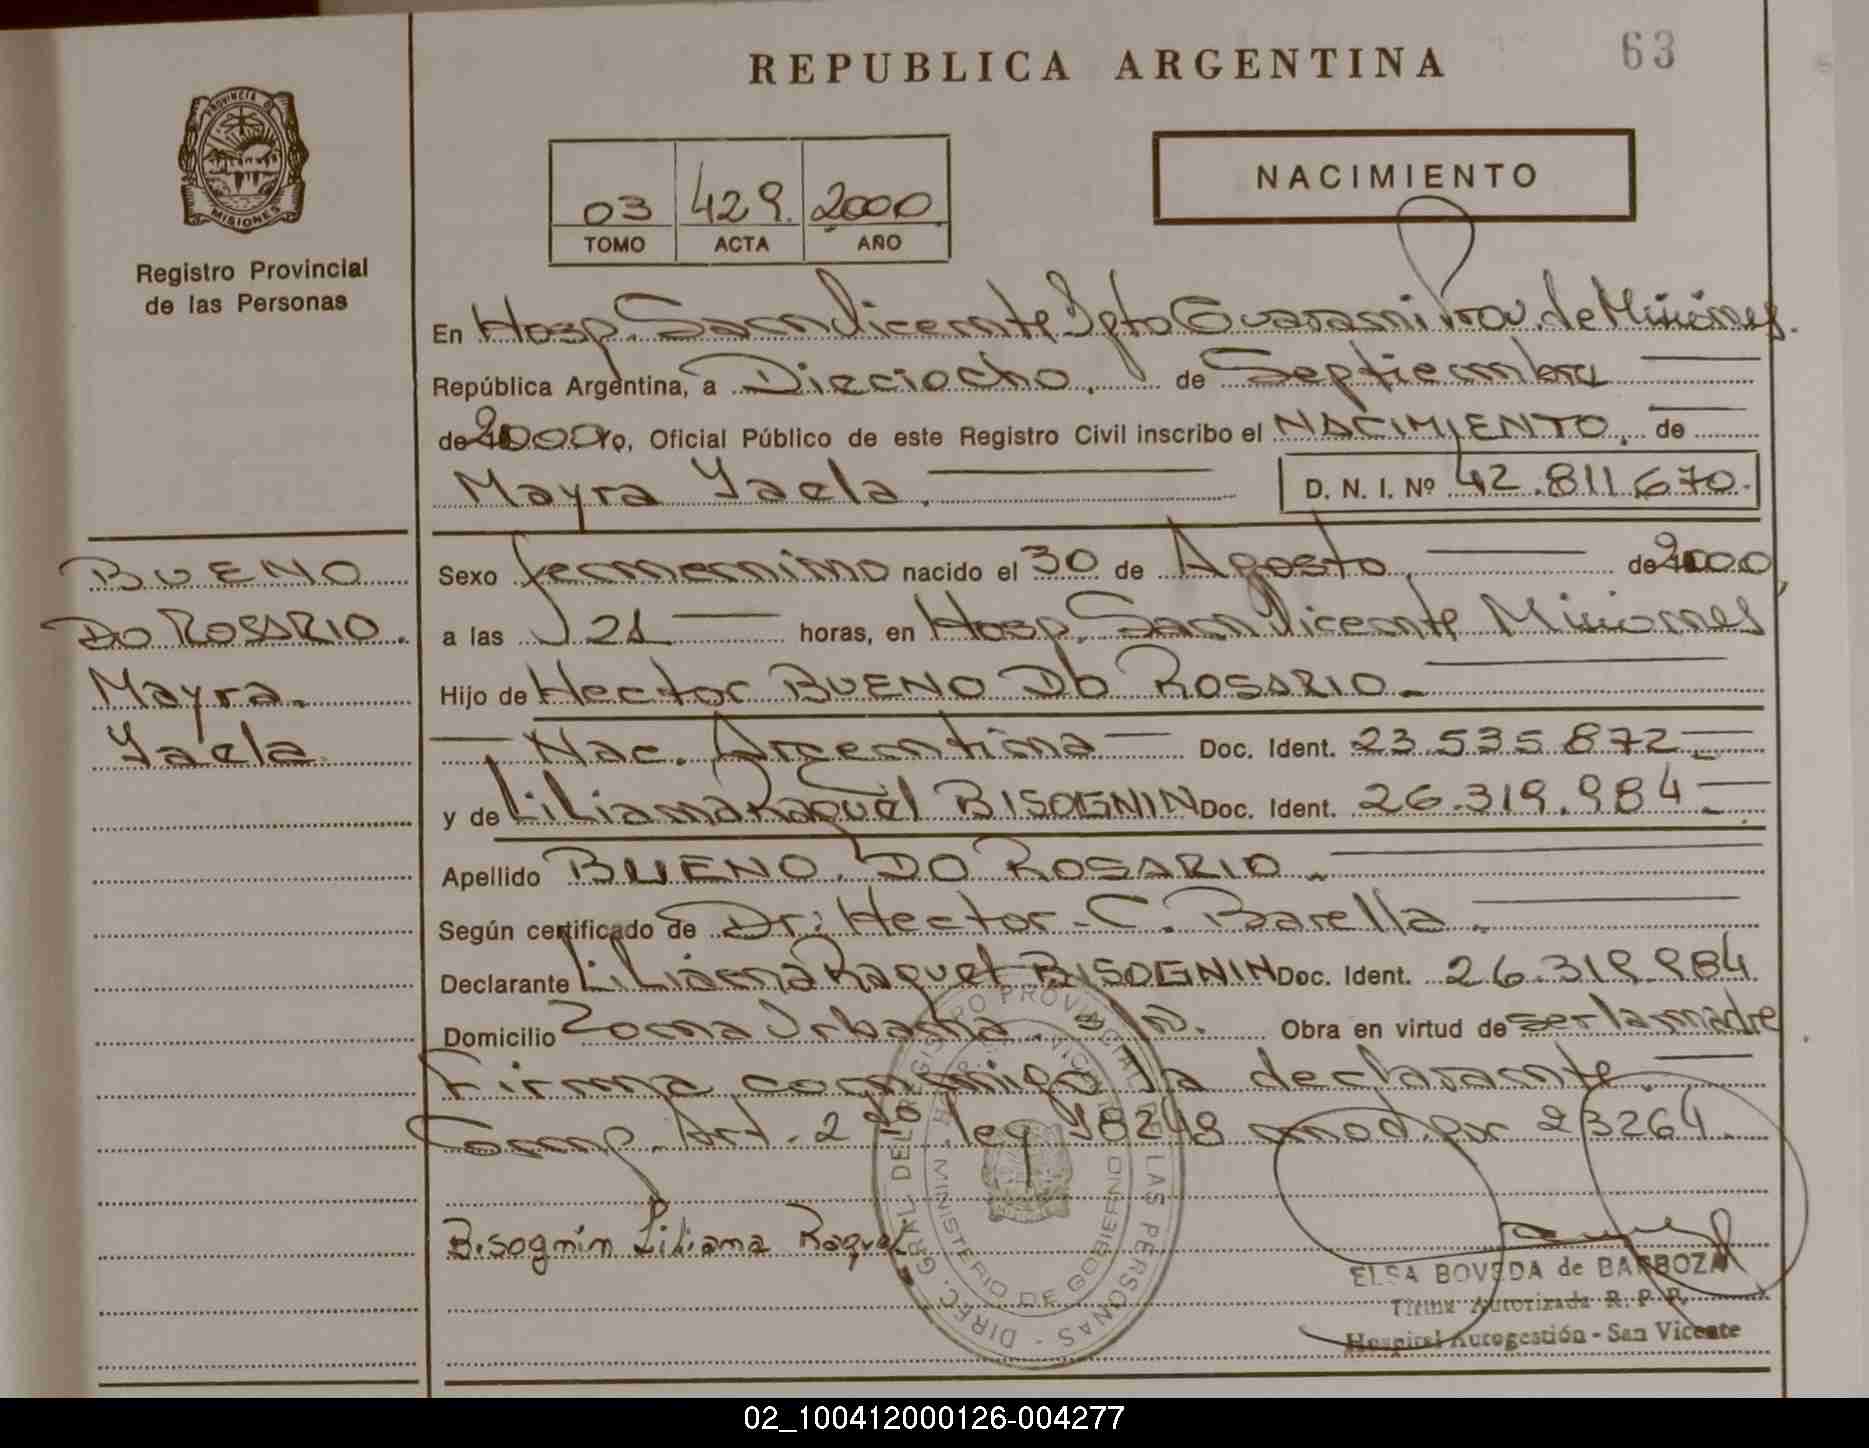 REPUBLICA ARGENTINA
63
PROVINCIA DE
MISIONES
Registro Provincial
de las Personas
03 429. 2000
TOMO ACTA AÑO
NACIMIENTO
En Hosp. San Vicente Dpto Guarani Prov. de Misiones.
República Argentina, a Dieciocho. de Septiembre
de 2000 Yo, Oficial Público de este Registro Civil inscribo el NACIMIENTO. de
Mayra Yaela. D. N. I. Nº 42.811.670.
BUENO
DO ROSARIO.
Mayra.
Yaela
Sexo femenino nacido el 30 de Agosto, de 2000,
a las 21 horas, en Hosp. San Vicente Misiones
Hijo de Hector BUENO DO ROSARIO.
Nac. Argentina Doc. Ident. 23.535.872.
y de Liliana Raquel BISOGNIN Doc. Ident. 26.319.984.
Apellido BUENO DO ROSARIO.
Según certificado de Dr: Hector C. Barella.
Declarante Liliana Raquel BISOGNIN Doc. Ident. 26.319.984
Domicilio Zona Urbana. s/n. Obra en virtud de ser la madre
Firma conmigo la declarante.
Comp. Art. 2do ley 18248 mod. por 23264.
Bisognin Liliana Raquel
DIREC. GRAL. DEL REGISTRO PROVINCIAL DE LAS PERSONAS
MINISTERIO DE GOBIERNO
ELSA BOVEDA de BARBOZA
Firma Autorizada R. P. P.
Hospital Autogestión - San Vicente
02_100412000126-004277